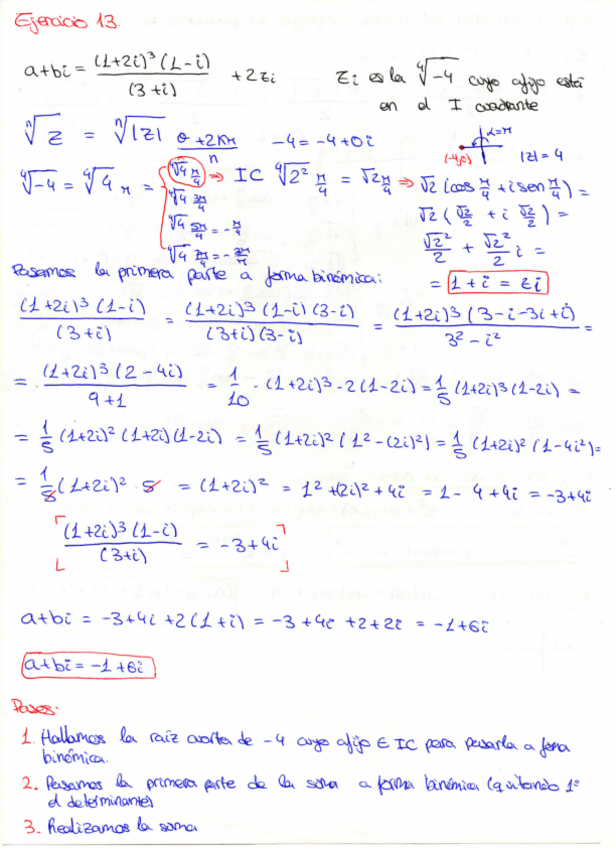 Ejercicio 13.
a+bi = (1+2i)³(1-i) / (3+i) + 2zi   zi es la ⁴√-4 cuyo afijo está
en el I cuadrante
ⁿ√z = ⁿ√|z| θ+2kπ / n   -4 = -4+0i   (-4,0)   α=π   |z|=4
⁴√-4 = ⁴√4 π = ⁴√4 π/4 ⇒ IC ⁴√2² π/4 = √2 π/4 ⇒ √2 (cos π/4 + i sen π/4) =
⁴√4 3π/4   √2 (√2/2 + i √2/2) =
⁴√4 5π/4 = -π/4   √2²/2 + √2²/2 i =
⁴√4 7π/4 = -3π/4   = 1+i = zi
Pasamos la primera parte a forma binómica:
(1+2i)³(1-i) / (3+i) = (1+2i)³(1-i)(3-i) / (3+i)(3-i) = (1+2i)³(3-i-3i+i) / 3²-i² =
= (1+2i)³(2-4i) / 9+1 = 1/10 · (1+2i)³·2(1-2i) = 1/5 (1+2i)³(1-2i) =
= 1/5 (1+2i)²(1+2i)(1-2i) = 1/5 (1+2i)²(1²-(2i)²) = 1/5 (1+2i)²(1-4i²) =
= 1/5 (1+2i)² · 5 = (1+2i)² = 1²+(2i)²+4i = 1-4+4i = -3+4i
(1+2i)³(1-i) / (3+i) = -3+4i
a+bi = -3+4i+2(1+i) = -3+4i+2+2i = -1+6i
a+bi = -1+6i
Pasos:
1. Hallamos la raíz cuarta de -4 cuyo afijo ∈ IC para pasarla a forma
binómica.
2. Pasamos la primera parte de la suma a forma binómica (quitando 1º
el determinante)
3. Realizamos la suma